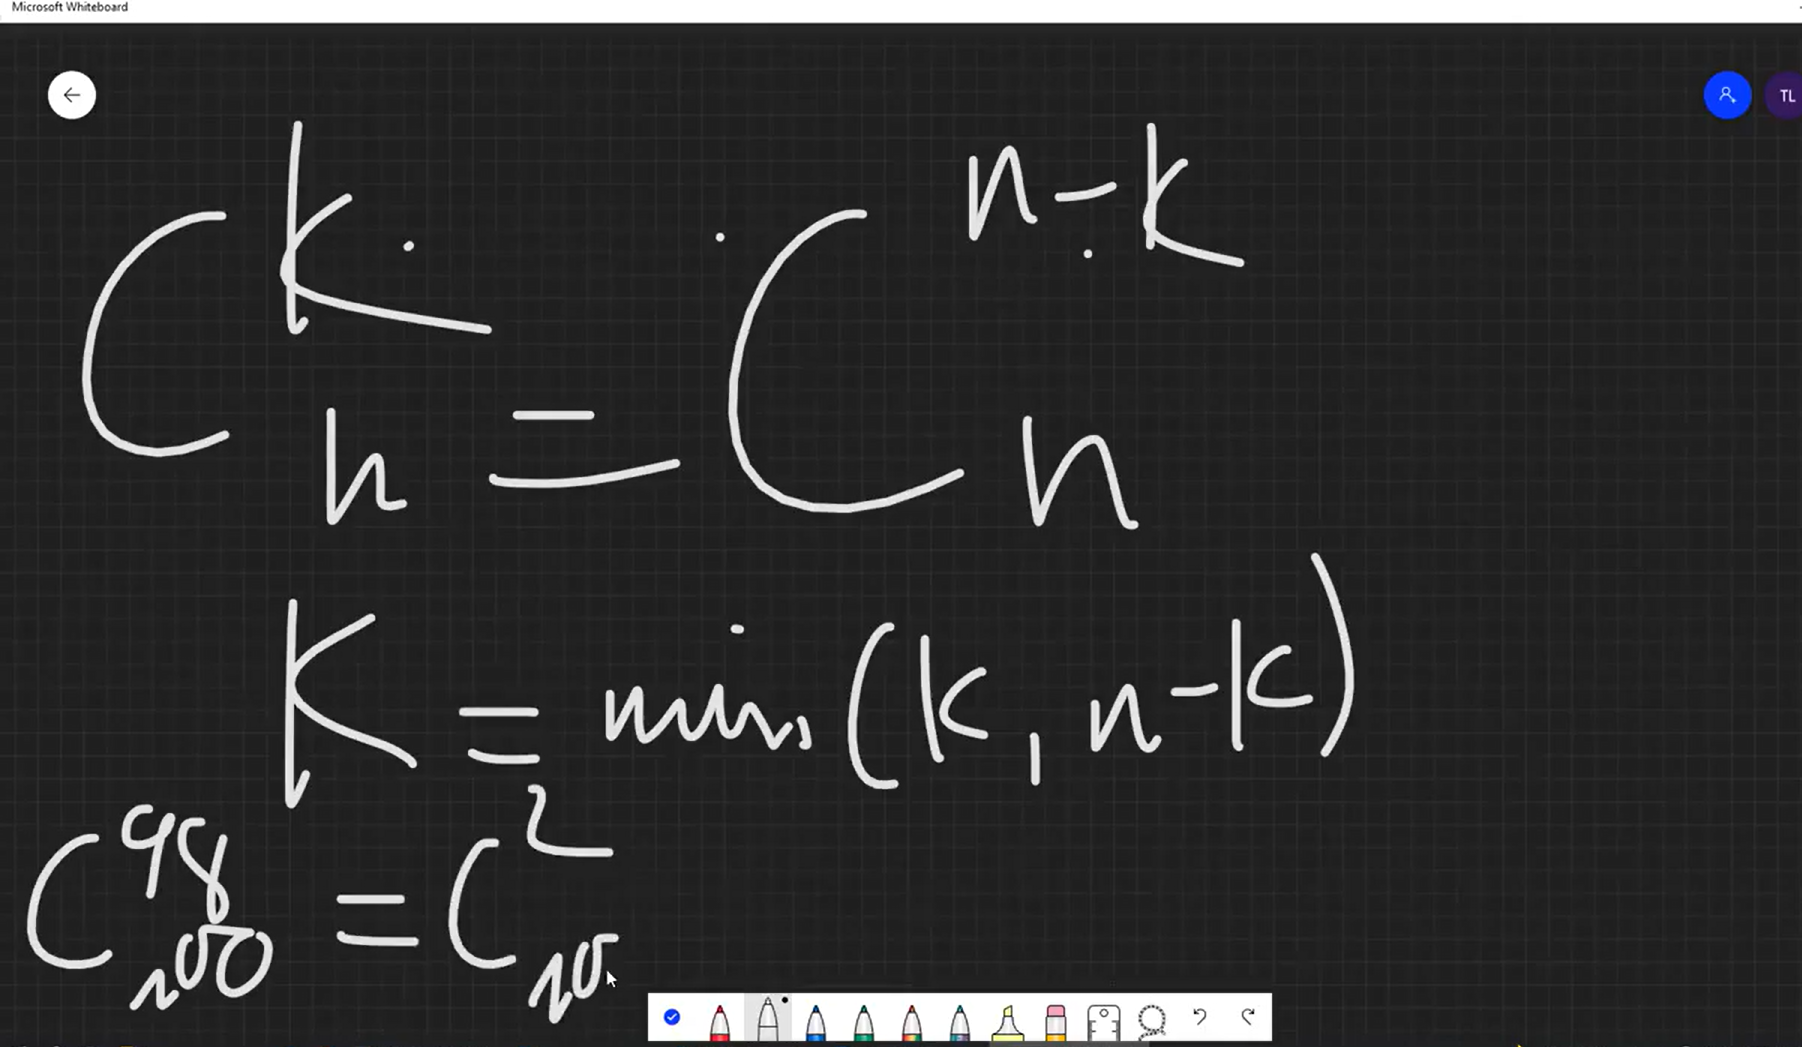 Microsoft Whiteboard
TL
C_n^k = C_n^{n-k}
K = min(k, n-k)
C_{100}^{98} = C_{10}^2